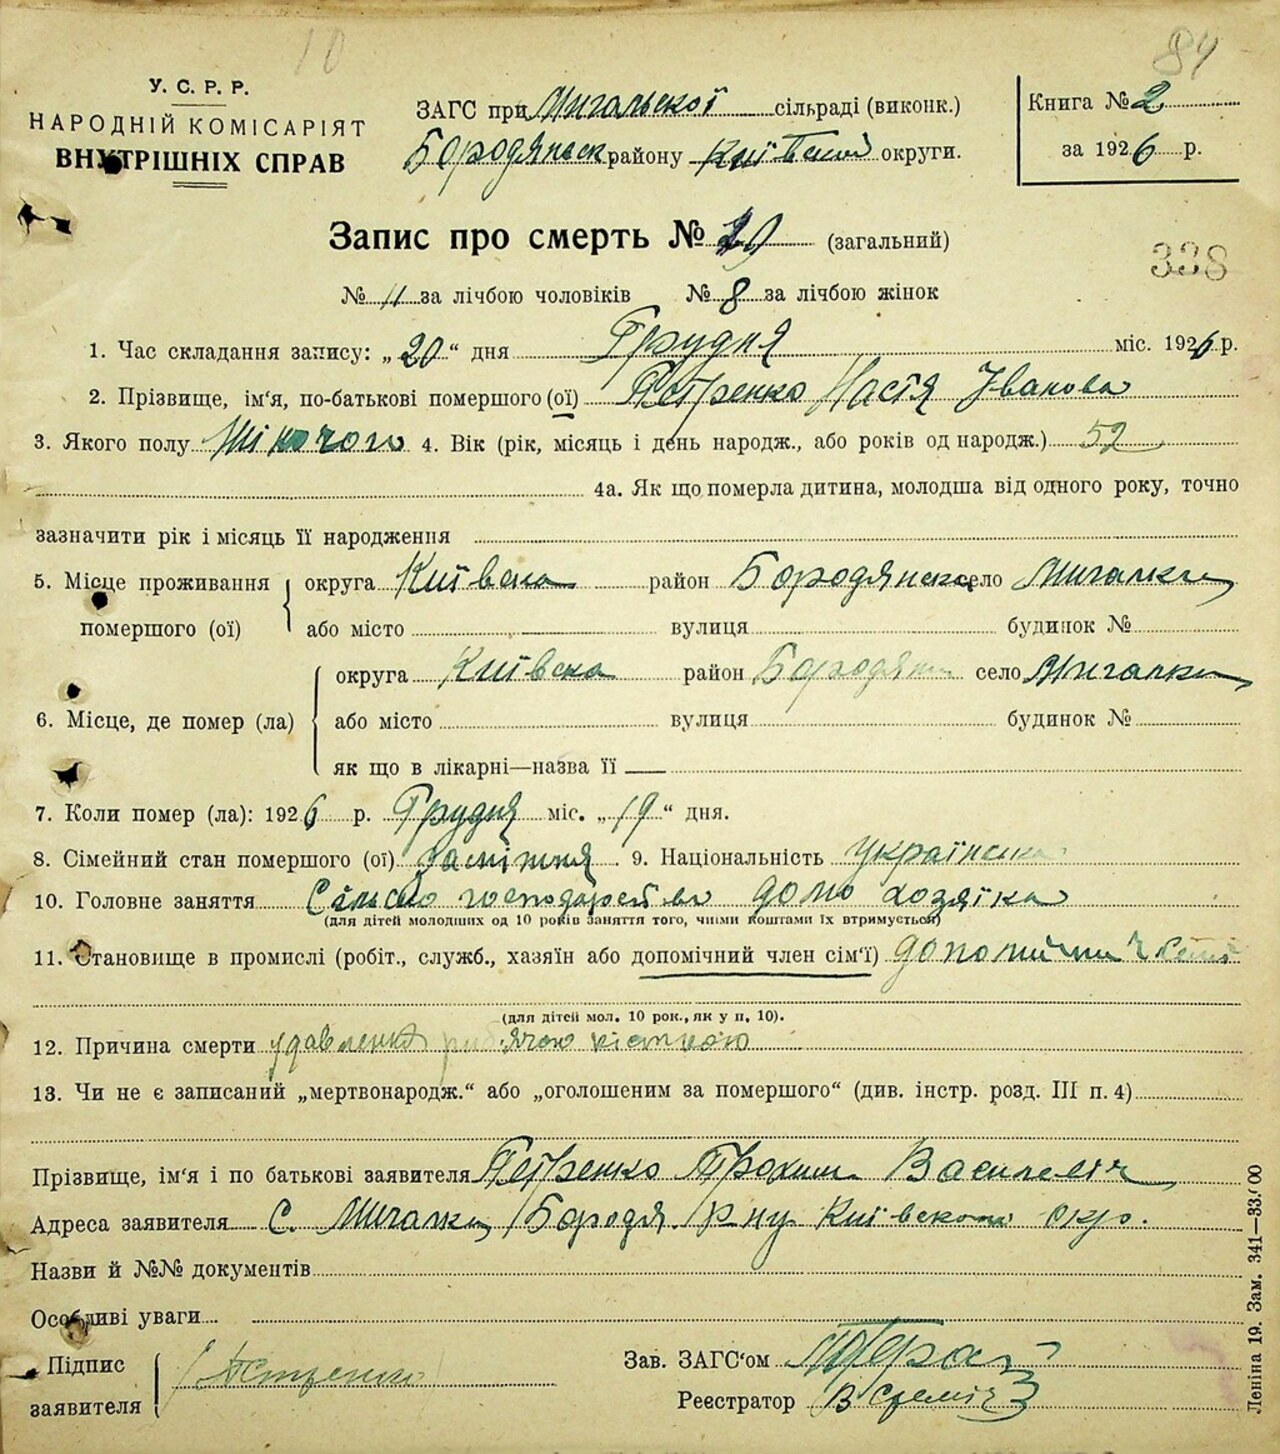 10
84
У. С. Р. Р.
НАРОДНІЙ КОМІСАРІЯТ
ВНУТРІШНІХ СПРАВ
ЗАГС при Мигальскої сільраді (виконк.)
Бородянськ району Київської округи.
Книга № 2
за 1926 р.
Запис про смерть № (загальний)
338
№ 11 за лічбою чоловіків № 8 за лічбою жінок
1. Час складання запису: „20“ дня Грудня міс. 1926 р.
2. Прізвище, ім'я, по-батькові помершого (ої) Петренко Настя Іванова
3. Якого полу Жіночого 4. Вік (рік, місяць і день народж., або років од народж.) 52
4а. Як що померла дитина, молодша від одного року, точно
зазначити рік і місяць її народження
5. Місце проживання помершого (ої) округа Київська район Бородянська село Мигалки
або місто вулиця будинок №
6. Місце, де помер (ла) округа Київска район Бородян село Мигалки
або місто вулиця будинок №
як що в лікарні—назва її
7. Коли помер (ла): 1926 р. Грудня міс. „19“ дня.
8. Сімейний стан помершого (ої) Заміжня 9. Національність українська
10. Головне заняття Сільско господарство домо хозяїка
(для дітей молодших од 10 років заняття того, чиїми коштами їх втримується)
11. Становище в промислі (робіт., служб., хазяїн або допомічний член сім'ї)
(для дітей мол. 10 рок., як у п. 10).
12. Причина смерти удавлення кісткою
13. Чи не є записаний „мертвонародж.“ або „оголошеним за помершого“ (див. інстр. розд. III п. 4)
Прізвище, ім'я і по батькові заявителя Петренко Трохим Василевіч
Адреса заявителя С. Мигалки Бородя р-ну Київского окр.
Назви й №№ документів
Особливі уваги
Підпис заявителя
Зав. ЗАГС'ом
Реєстратор
Леніна 19. Зам. 341—33.000